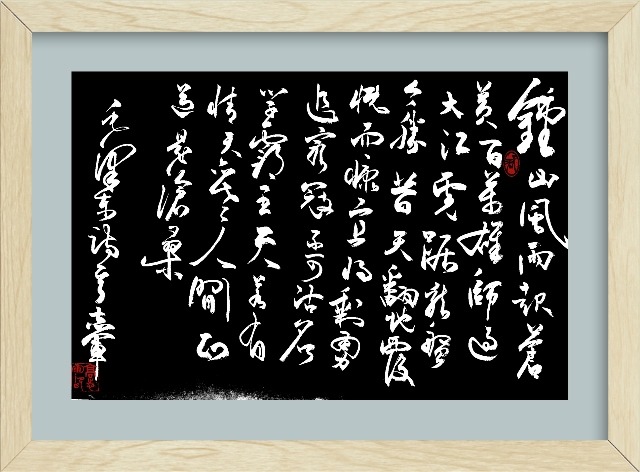 鍾山風雨起蒼
黄百萬雄師過
大江虎踞龍盤
今勝昔天翻地覆
慨而慷宜将剩勇
追窮寇不可沽名
學霸王天若有
情天亦老人間正
道是滄桑
毛澤東詩